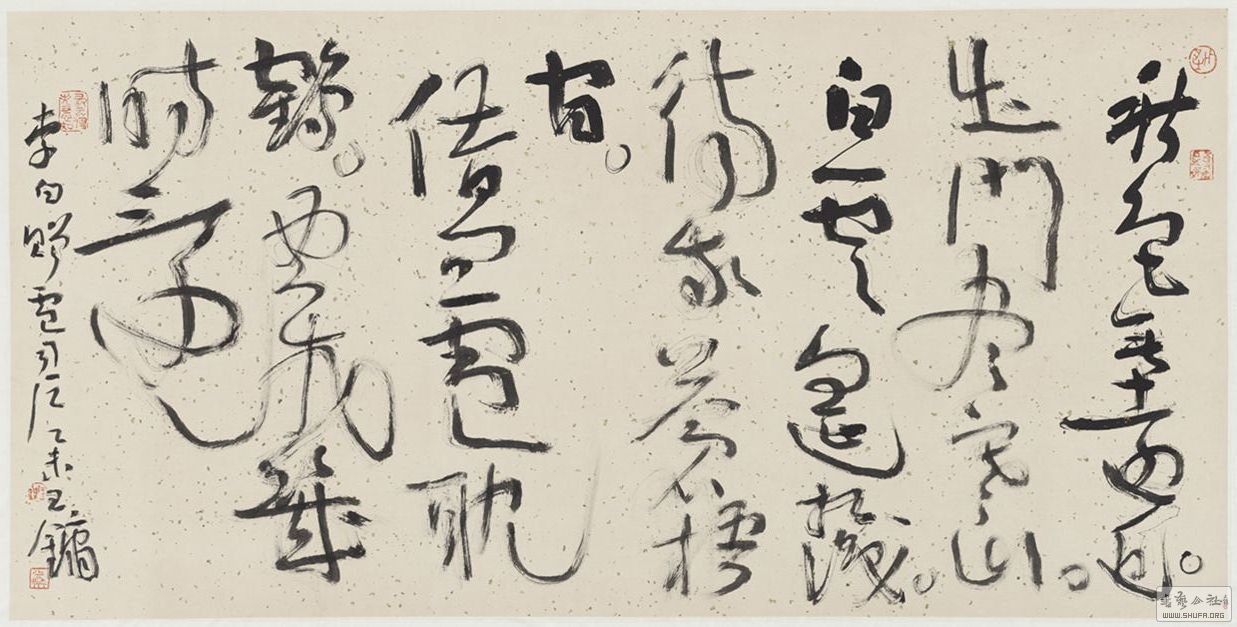 秋色無遠近。
出門盡寒山。
白雲遙相識。
待我蒼梧
間。
借問盧耽
鶴。西飛幾
時還
李白贈盧司戶 乙未王鏞
書藝公社
WWW.SHUFA.ORG